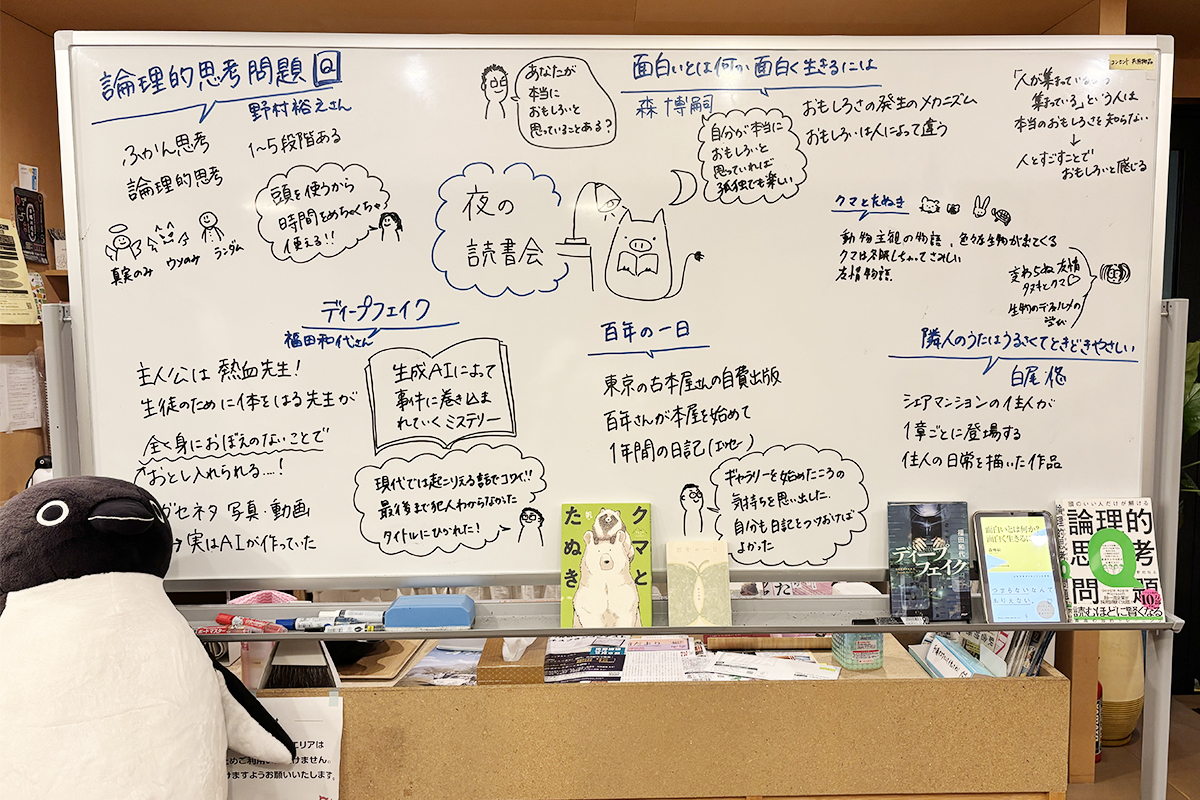 論理的思考問題 Q
野村裕之さん
ふかん思考
論理的思考
1~5段階ある
頭を使うから
時間をめちゃくちゃ
使える!!
真実のみ
ウソのみ
ランダム
あなたが
本当に
おもしろいと
思っていることある?
面白いとは何か面白く生きるには
森博嗣
おもしろさの発生のメカニズム
おもしろいは人によって違う
自分が本当に
おもしろいと
思っていれば
孤独でも楽しい
集まっている」という人は
本当のおもしろさを知らない
↓
人とすごすことで
おもしろいと感じる
夜の
読書会
クマとたぬき
動物主観の物語、色々な生物が出てくる
クマは冬眠しちゃってさみしい
友情物語
変わらぬ友情
タヌキとクマ♡
生物のデフォルメの
学び
ディープフェイク
福田和代さん
主人公は熱血先生!
生徒のために体をはる先生が
全く身におぼえのないことで
おとし入れられる....!
ガセネタ 写真・動画
→実はAIが作っていた
生成AIによって
事件に巻き込ま
れていくミステリー
現代では起こりえる話でコワイ!!
最後まで犯人わからなかった
タイトルにひかれた!
百年の一日
東京の古本屋さんの自費出版
百年さんが本屋を始めて
1年間の日記(エッセー)
ギャラリーを始めたころの
気持ちを思い出した.
自分も日記をつけておけば
よかった
隣人のうたはうるさくてときどきやさしい
白尾悠
シェアマンションの住人が
1章ごとに登場する
住人の日常を描いた作品
クマと
たぬき
百年の一日
ディープ
フェイク
福田和代
面白いとは何か?
面白く生きるには?
森博嗣
つまらないなんて
ありえない。
頭のいい人だけが解ける
論理的
思考
問題
Q
読むほどに賢くなる
エリアは
けますようお願いいたします。